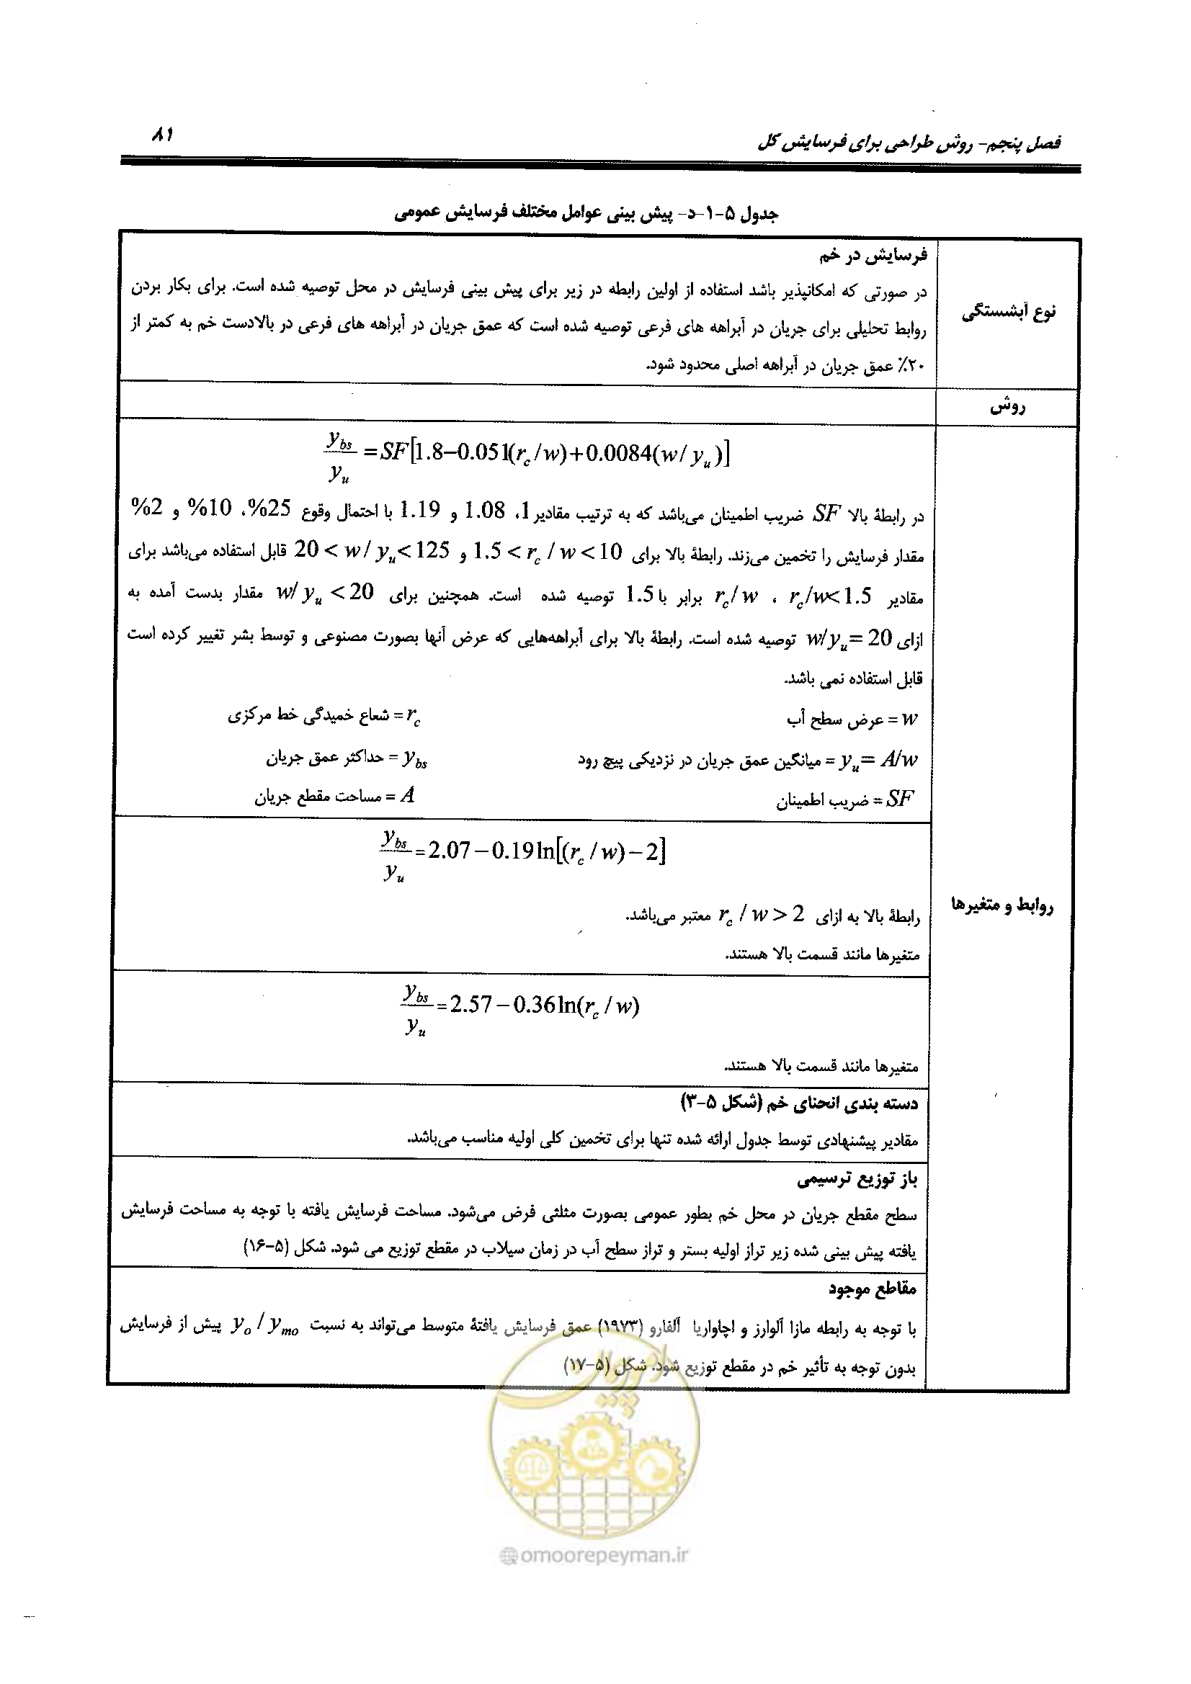 فصل پنجم- روش طراحی برای فرسایش کل
۸۱
جدول ۵-۱-د- پیش بینی عوامل مختلف فرسایش عمومی
نوع آبشستگی
فرسایش در خم
در صورتی که امکانپذیر باشد استفاده از اولین رابطه در زیر برای پیش بینی فرسایش در محل توصیه شده است. برای بکار بردن
روابط تحلیلی برای جریان در آبراهه های فرعی توصیه شده است که عمق جریان در آبراهه های فرعی در بالادست خم به کمتر از
۲۰٪ عمق جریان در آبراهه اصلی محدود شود.
روش
روابط و متغیرها
y_bs / y_u = SF[1.8-0.051(r_c/w)+0.0084(w/y_u)]
در رابطهٔ بالا SF ضریب اطمینان می‌باشد که به ترتیب مقادیر 1، 1.08 و 1.19 با احتمال وقوع 25%، 10% و 2%
مقدار فرسایش را تخمین می‌زند. رابطهٔ بالا برای 1.5 < r_c / w < 10 و 20 < w/ y_u < 125 قابل استفاده می‌باشد برای
مقادیر r_c/w<1.5 ، r_c/w برابر با 1.5 توصیه شده است. همچنین برای w/ y_u < 20 مقدار بدست آمده به
ازای w/y_u = 20 توصیه شده است. رابطهٔ بالا برای آبراهه‌هایی که عرض آنها بصورت مصنوعی و توسط بشر تغییر کرده است
قابل استفاده نمی باشد.
w = عرض سطح آب
r_c = شعاع خمیدگی خط مرکزی
y_u = A/w = میانگین عمق جریان در نزدیکی پیچ رود
y_bs = حداکثر عمق جریان
SF = ضریب اطمینان
A = مساحت مقطع جریان
y_bs / y_u = 2.07-0.19ln[(r_c / w)-2]
رابطهٔ بالا به ازای r_c / w > 2 معتبر می‌باشد.
متغیرها مانند قسمت بالا هستند.
y_bs / y_u = 2.57-0.36ln(r_c / w)
متغیرها مانند قسمت بالا هستند.
دسته بندی انحنای خم (شکل ۵-۳)
مقادیر پیشنهادی توسط جدول ارائه شده تنها برای تخمین کلی اولیه مناسب می‌باشد.
باز توزیع ترسیمی
سطح مقطع جریان در محل خم بطور عمومی بصورت مثلثی فرض می‌شود. مساحت فرسایش یافته با توجه به مساحت فرسایش
یافته پیش بینی شده زیر تراز اولیه بستر و تراز سطح آب در زمان سیلاب در مقطع توزیع می شود. شکل (۵-۱۶)
مقاطع موجود
با توجه به رابطه مازا آلوارز و اچاواریا آلفارو (۱۹۷۳) عمق فرسایش یافتهٔ متوسط می‌تواند به نسبت y_o / y_mo پیش از فرسایش
بدون توجه به تأثیر خم در مقطع توزیع شود. شکل (۵-۱۷)
امور پیمان
@omoorepeyman.ir